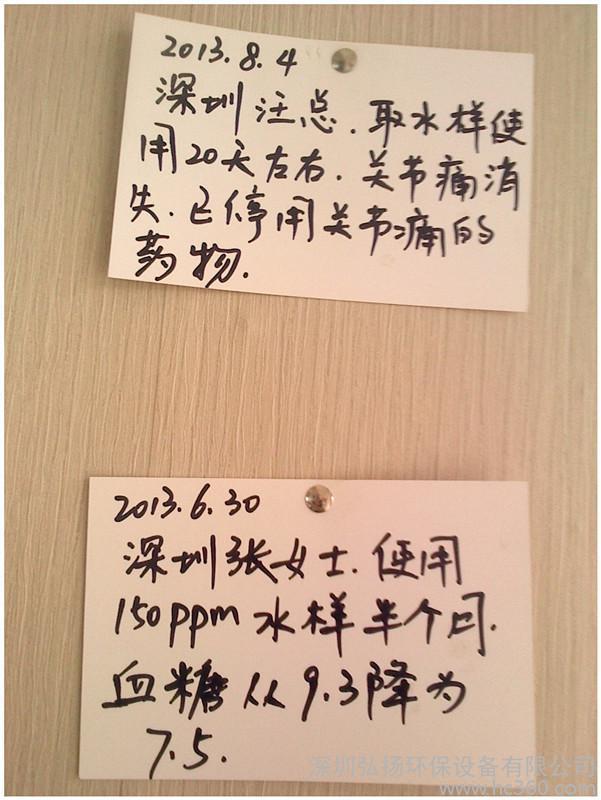 2013.8.4
深圳汪总.取水样使
用20天左右.关节痛消
失.已停用关节痛的
药物.
2013.6.30
深圳张女士.使用
150ppm水样半个月.
血糖从9.3降为
7.5.
深圳弘扬环保设备有限公司
www.hc360.com